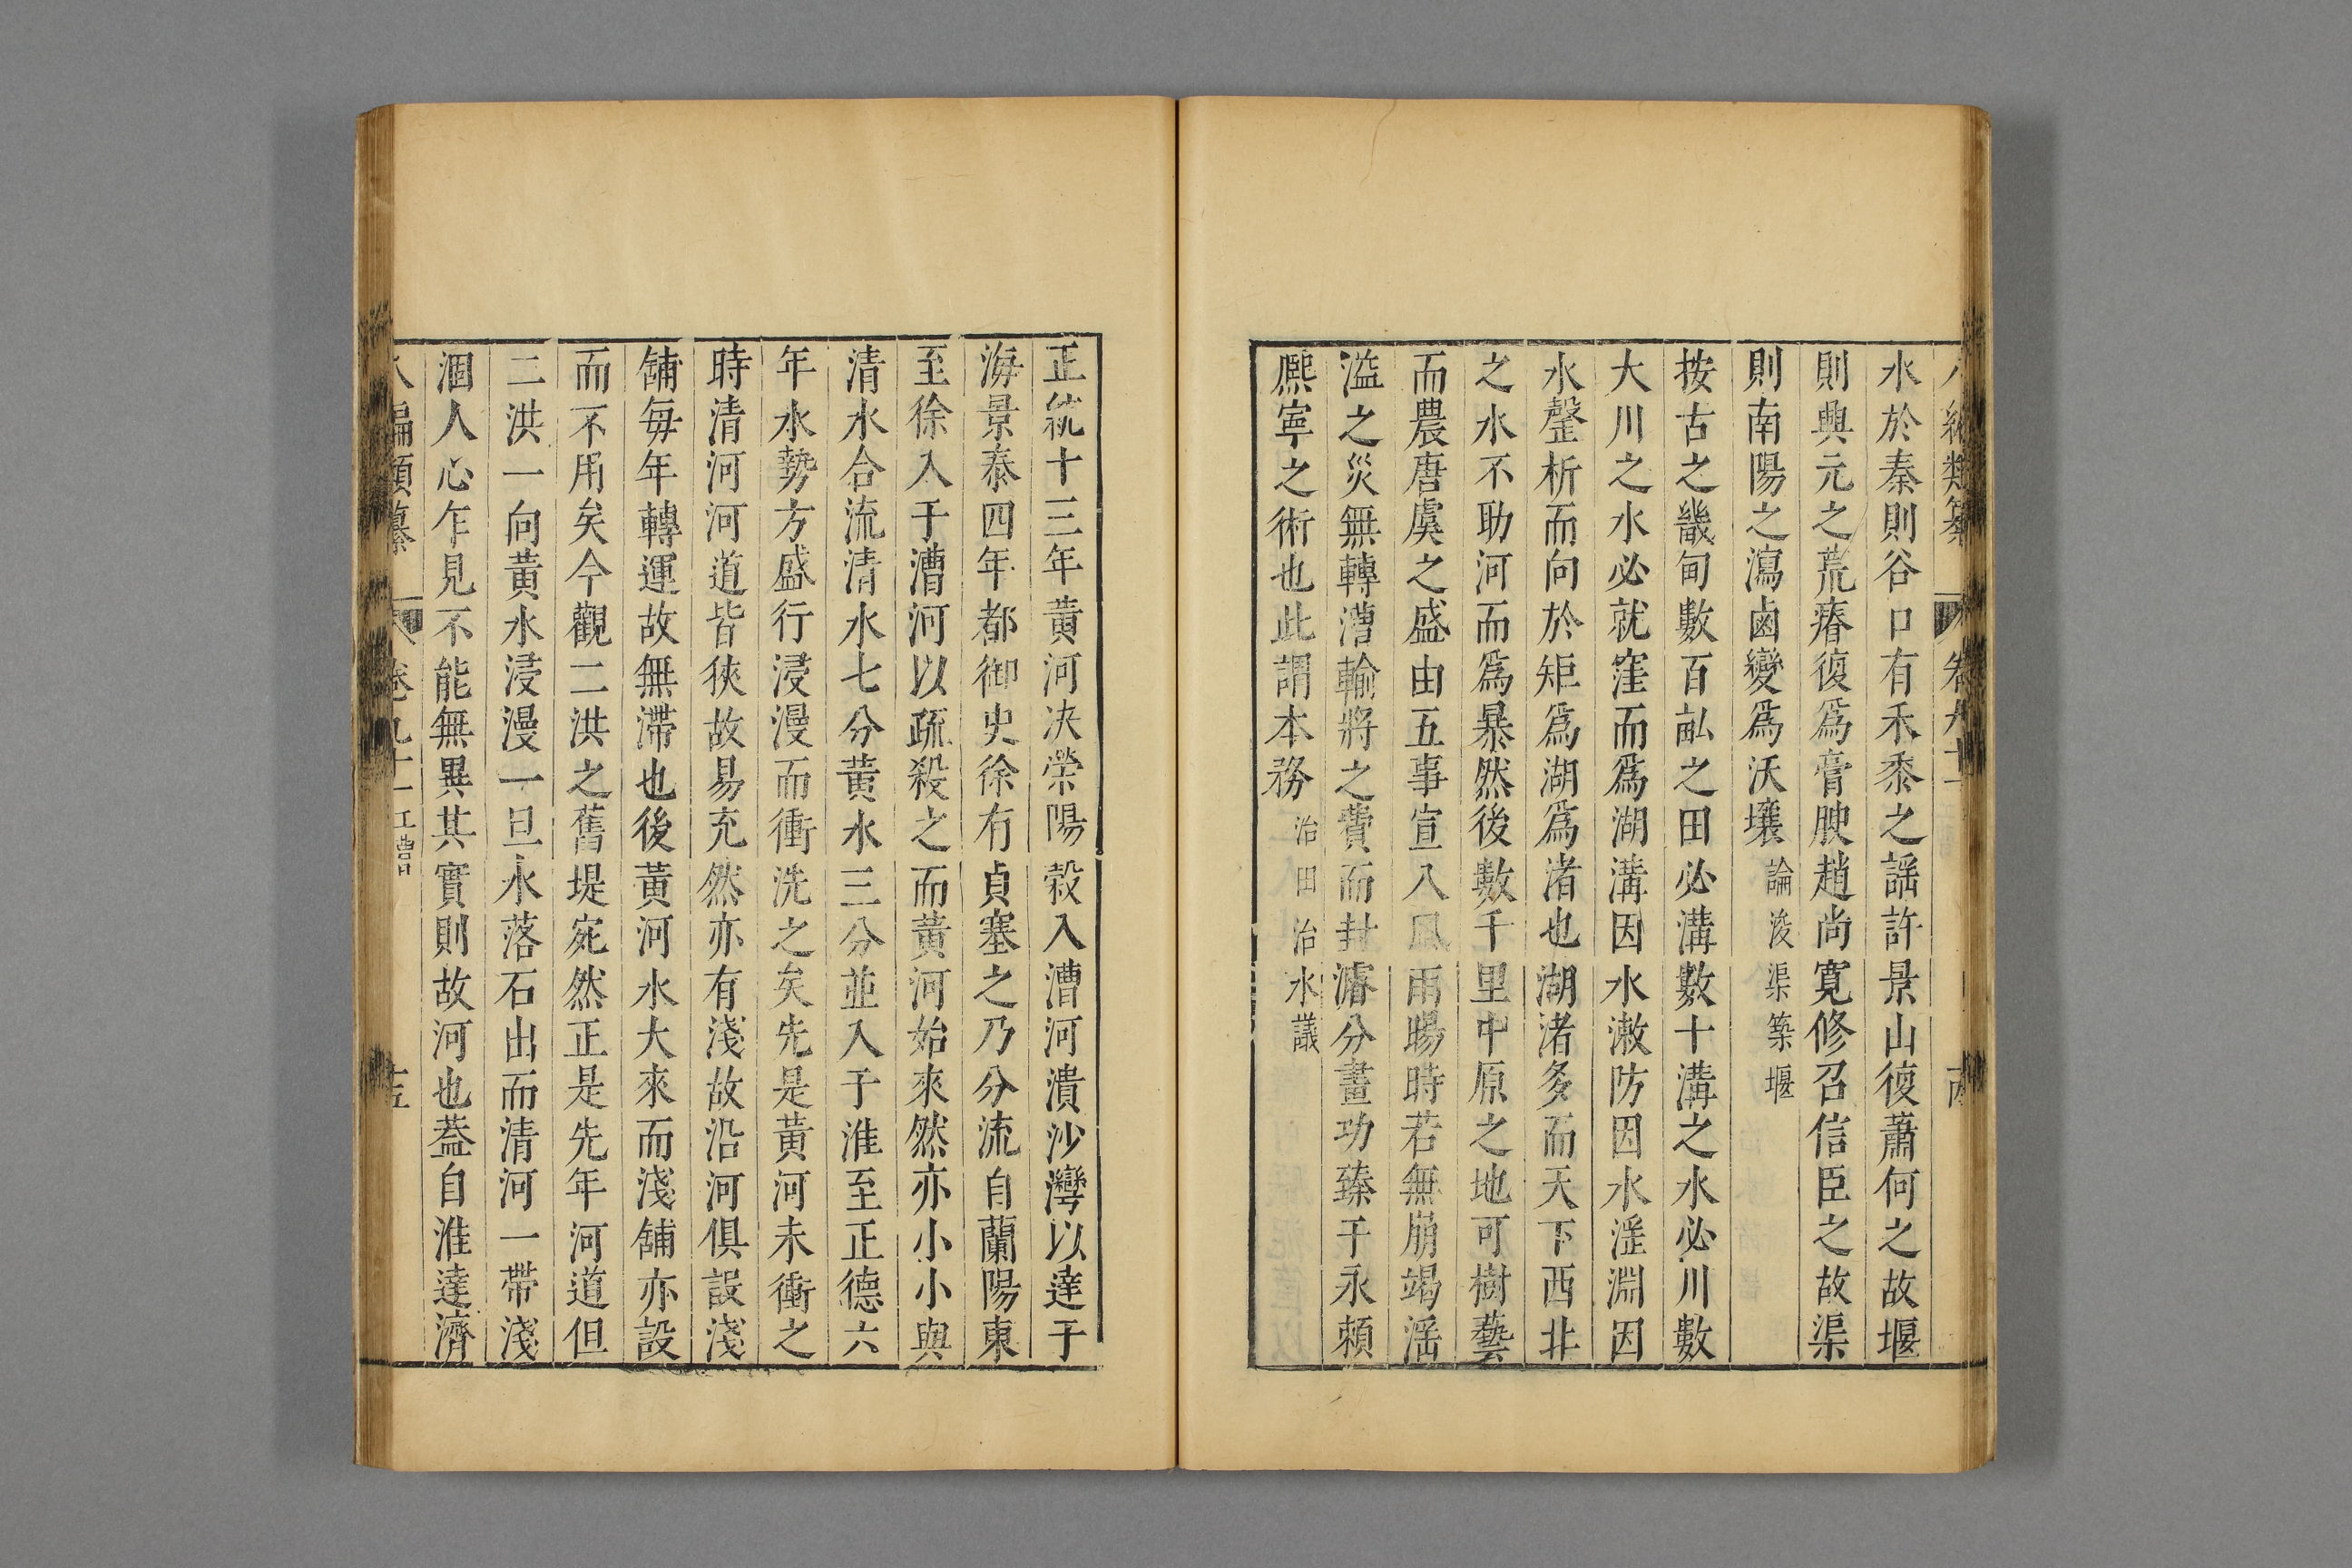 水於秦則谷口有禾黍之謡許景山復蕭何之故堰
則興元之荒瘠復爲膏腴趙尚寛修召信臣之故渠
則南陽之瀉鹵變爲沃壤論浚渠築堰
按古之畿甸數百畝之田必溝數十溝之水必川數
大川之水必就窪而爲湖溝因水潄防因水滛淵因
水罄析而向於矩爲湖爲渚也湖渚多而天下西北
之水不助河而爲暴然後數千里中原之地可樹藝
而農唐虞之盛由五事宣八風雨暘時若無崩竭滛
溢之災無轉漕輸將之費而封濬分畫功臻于永頼
熈寧之術也此謂本務治田治水議
正統十三年黄河决滎陽榖入漕河潰沙灣以達于
海景泰四年都御史徐有貞塞之乃分流自蘭陽東
至徐入于漕河以疏殺之而黄河始來然亦小小與
清水合流清水七分黄水三分並入于淮至正德六
年水勢方盛行浸漫而衝洗之矣先是黄河未衝之
時清河河道皆狹故易充然亦有淺故沿河俱設淺
舖每年轉運故無滯也後黄河水大來而淺舖亦設
而不用矣今觀二洪之舊堤宛然正是先年河道但
二洪一向黄水浸漫一旦水落石出而清河一帶淺
涸人心乍見不能無異其實則故河也葢自淮達濟
編類纂 卷九十一 工漕 十五